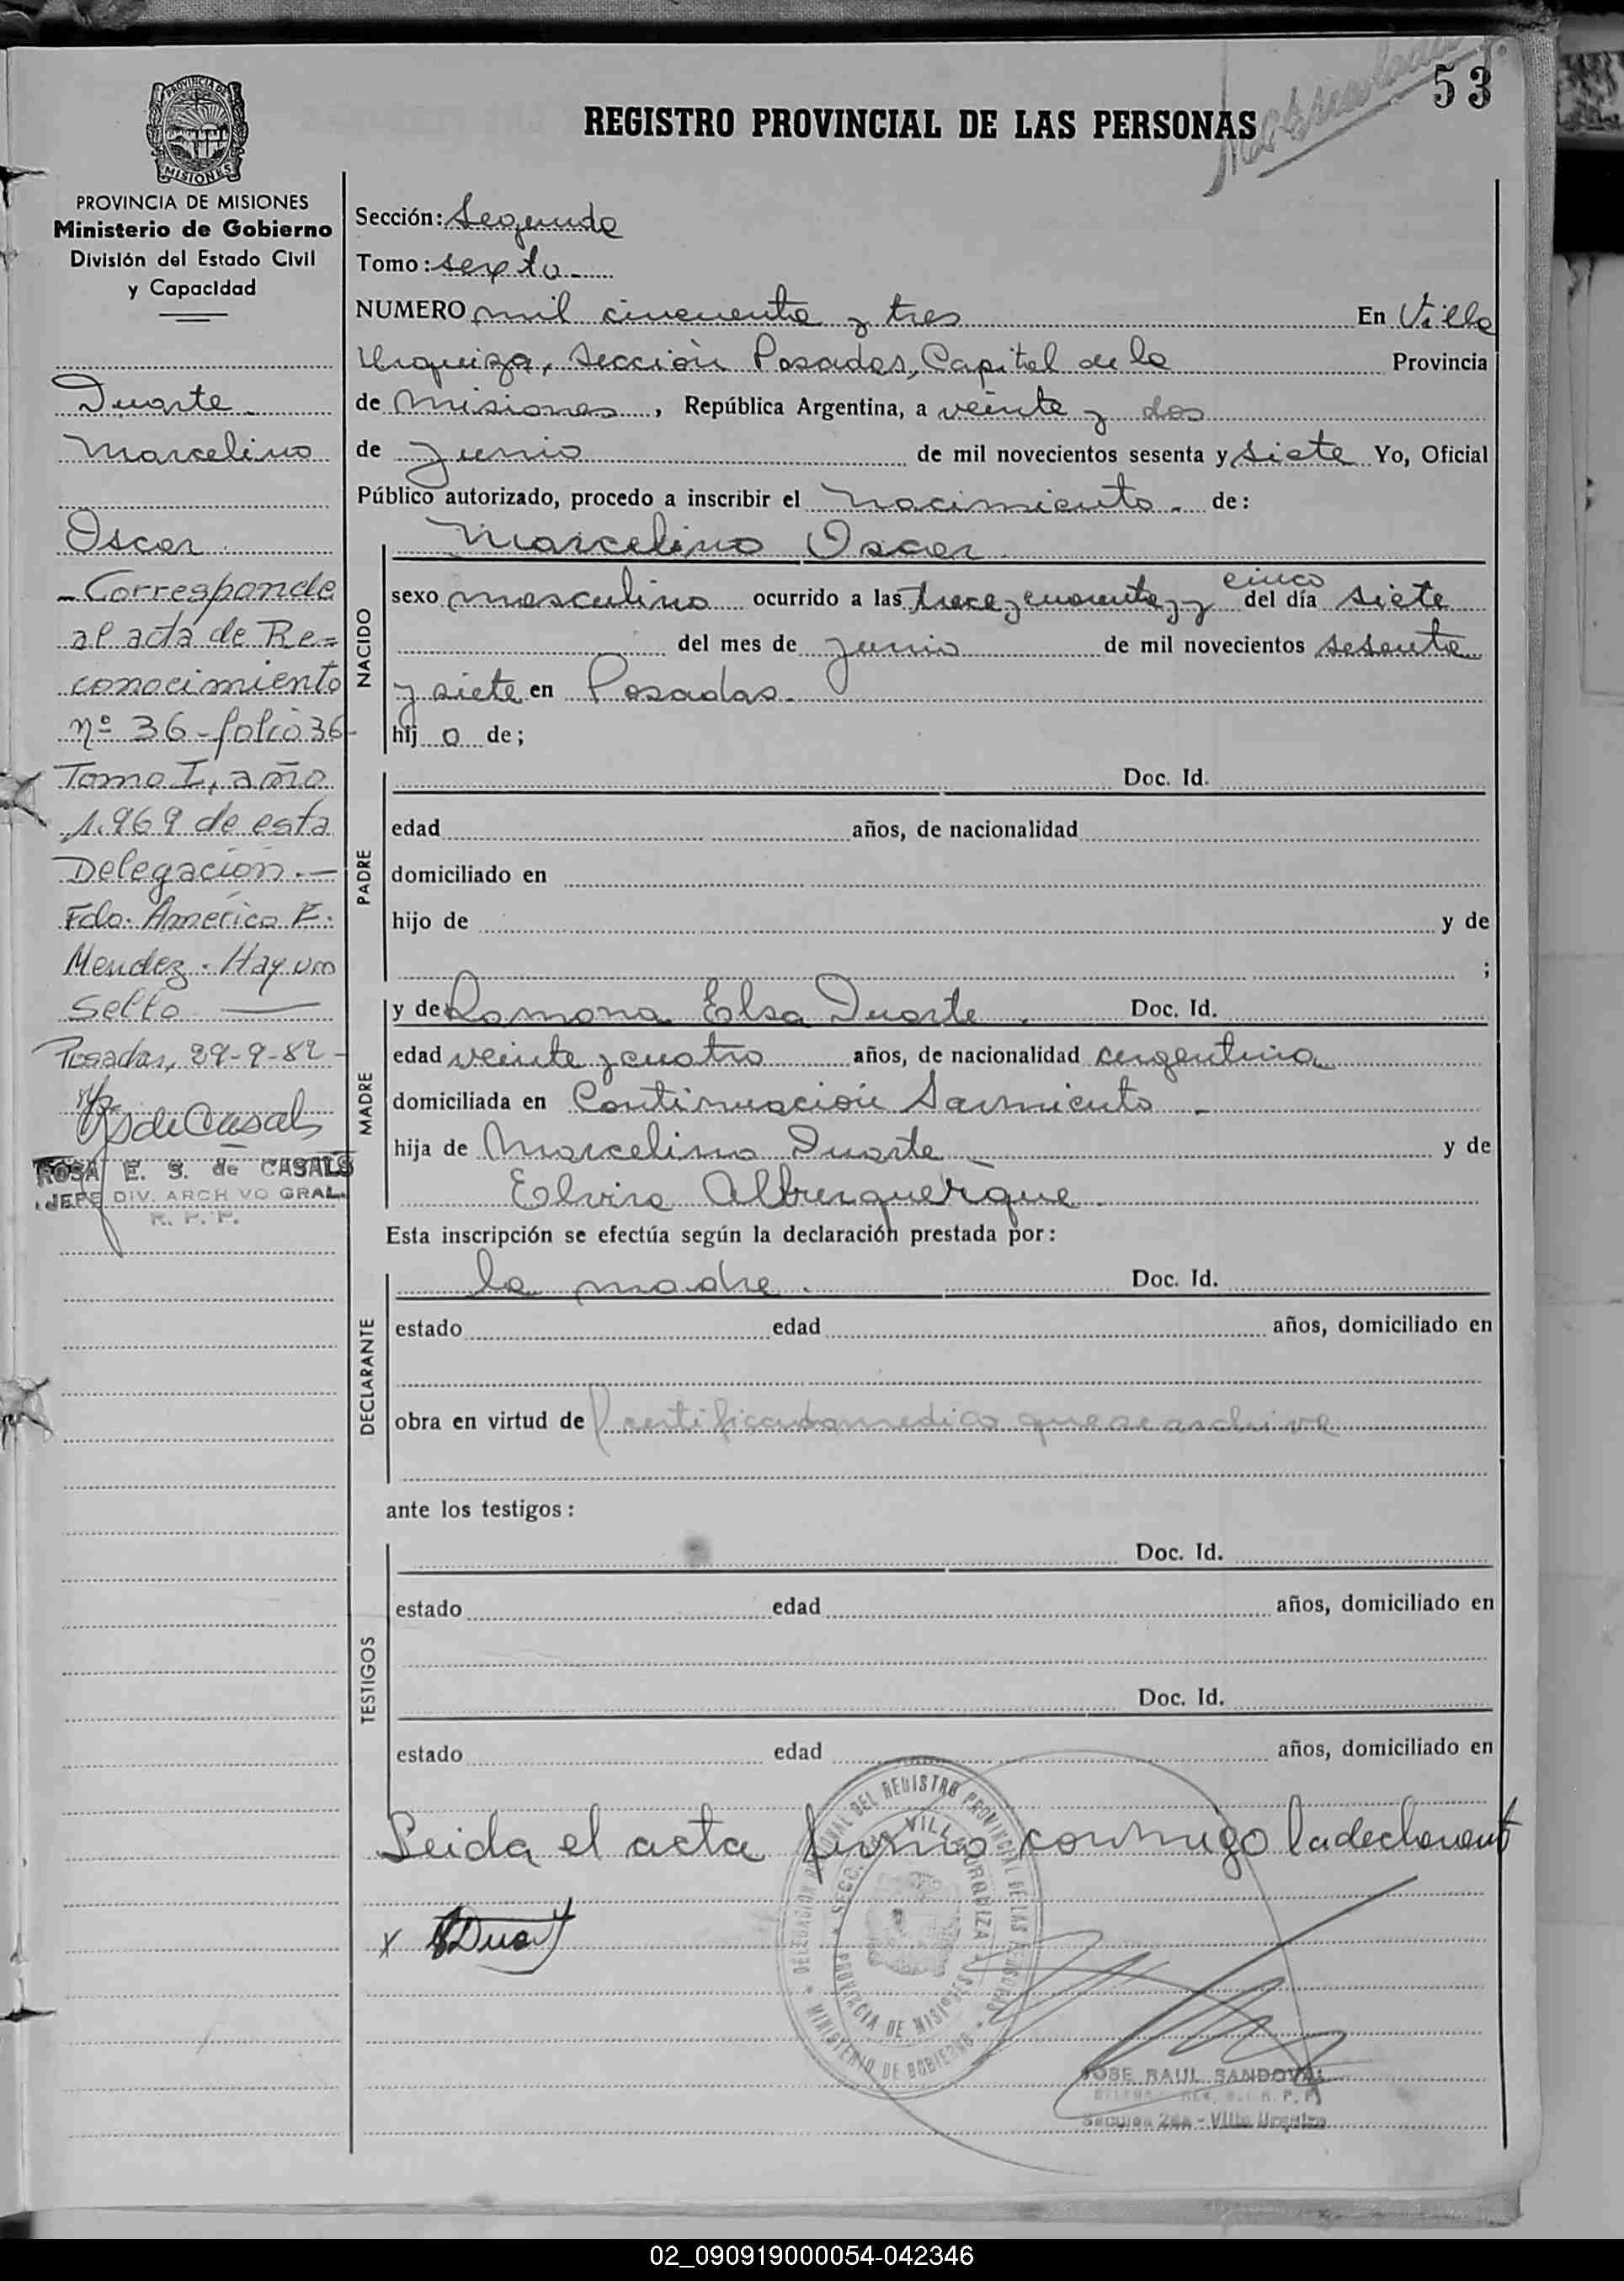 53
REGISTRO PROVINCIAL DE LAS PERSONAS
PROVINCIA DE
MISIONES
PROVINCIA DE MISIONES
Ministerio de Gobierno
División del Estado Civil
y Capacidad
Duarte
Marcelino
Oscar
- Corresponde
al acta de Re=
conocimiento
nº 36 - folio 36-
Tomo I, año
1.969 de esta
Delegación.-
Fdo. Américo E.
Mendez. Hay un
Sello —
Posadas, 29-9-82-
ROSA E. S. de CASALS
JEFE DIV. ARCHIVO GRAL.
R. P. P.
Sección: Segunda
Tomo: sexto
NUMERO mil cincuenta y tres En Villa
Urquiza, Sección Posadas, Capital de la Provincia
de Misiones, República Argentina, a veinte y dos
de Junio de mil novecientos sesenta y siete Yo, Oficial
Público autorizado, procedo a inscribir el Nacimiento. de:
NACIDO
Marcelino Oscar
sexo masculino ocurrido a las trece y cuarenta y cinco del día siete
del mes de Junio de mil novecientos sesenta
y siete en Posadas.
hij o de;
PADRE
Doc. Id.
edad años, de nacionalidad
domiciliado en
hijo de y de
;
MADRE
y de Ramona Elsa Duarte. Doc. Id.
edad veinte y cuatro años, de nacionalidad argentina
domiciliada en Continuación Sarmiento -
hija de Marcelino Duarte - y de
Elvira Alburquerque.
Esta inscripción se efectúa según la declaración prestada por:
DECLARANTE
la madre. Doc. Id.
estado edad años, domiciliado en
obra en virtud de certificado medico que se archiva
ante los testigos:
TESTIGOS
Doc. Id.
estado edad años, domiciliado en
Doc. Id.
estado edad años, domiciliado en
Leida el acta firma conmigo la declarant
x Duart
DEL REGISTRO PROVINCIAL DE LAS PERSONAS
MINISTERIO DE GOBIERNO
SECC. VILLA URQUIZA
PROVINCIA DE MISIONES
JOSE RAUL SANDOVAL
Sección 2da - Villa Urquiza
02_090919000054-042346